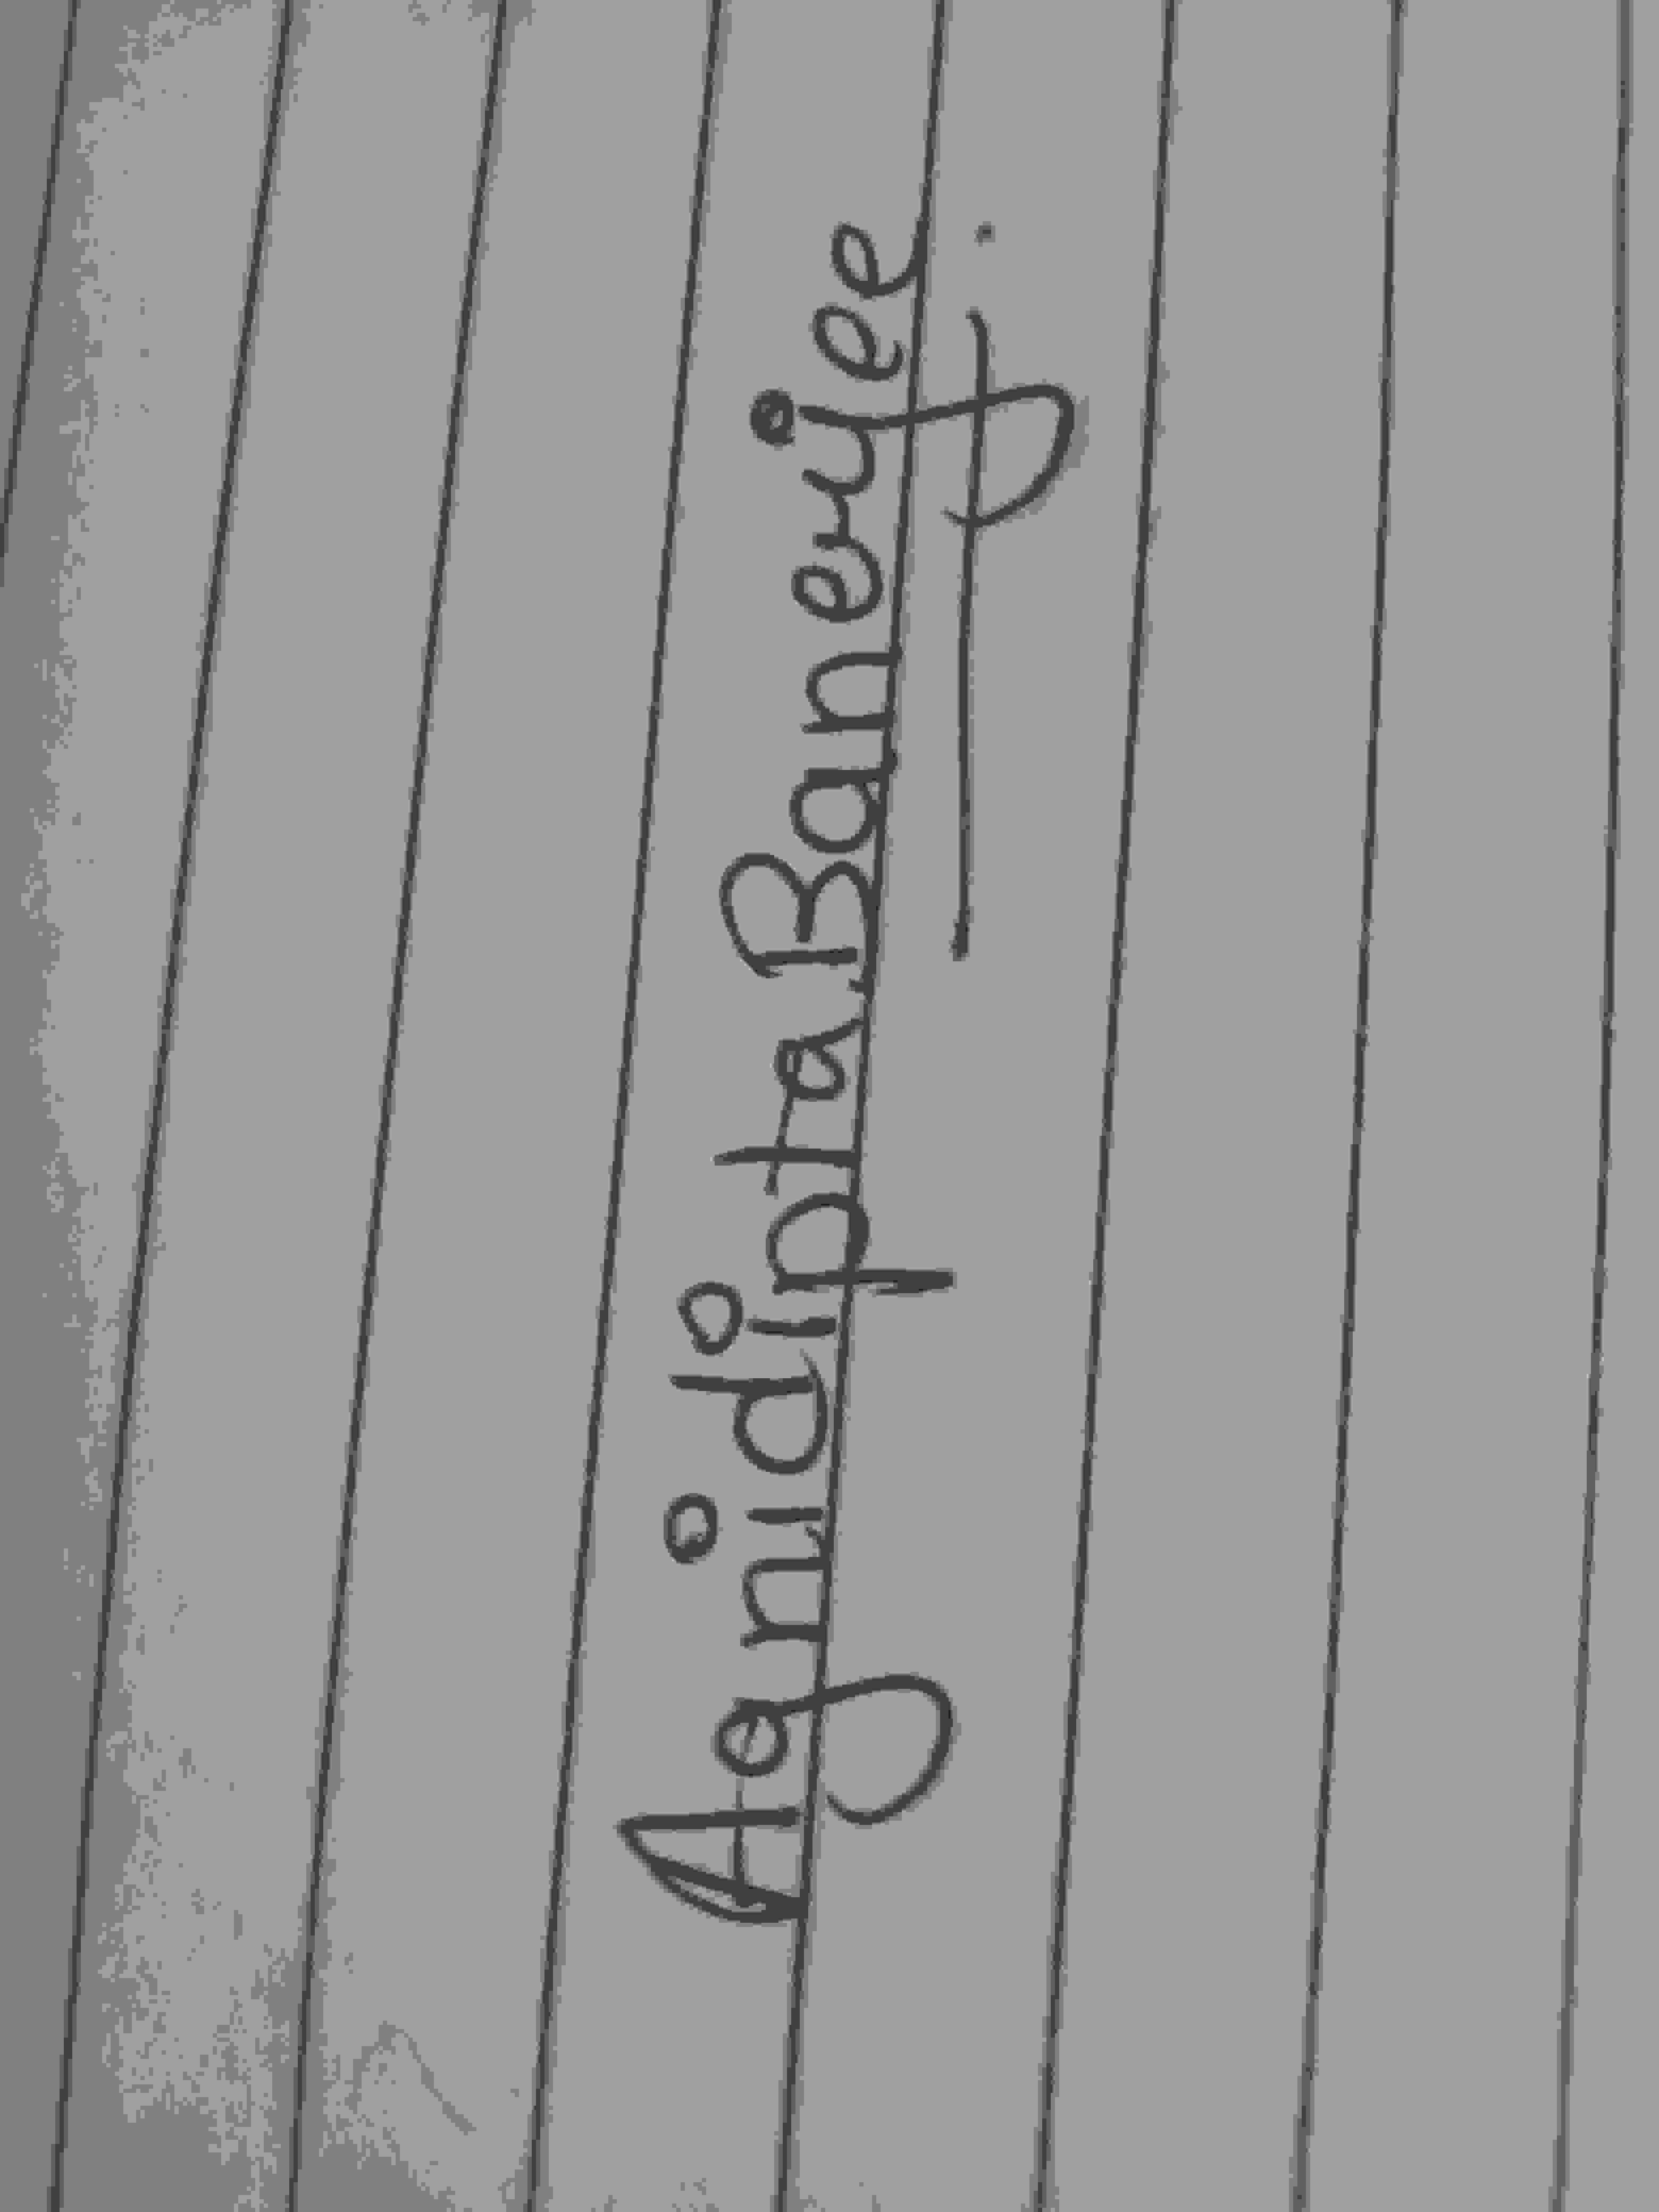 Agnidipta Banerjee.